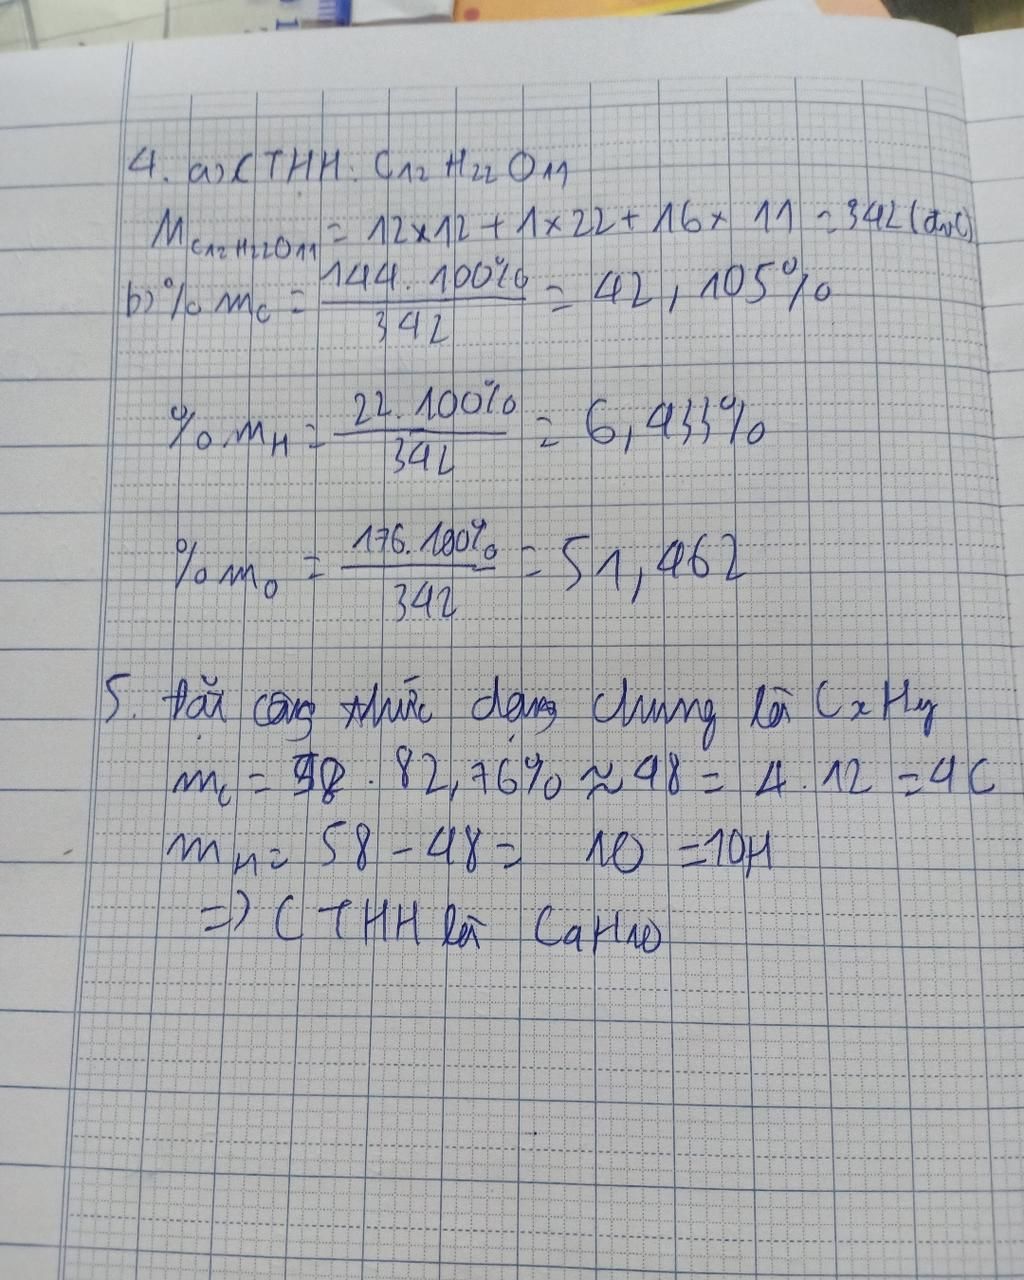 4. a) CTHH: C12H22O11
MC12H22O11 = 12×12 + 1×22 + 16× 11 = 342 (đvC)
b) % mC = 144.100% / 342 = 42,105%
% mH = 22.100% / 342 = 6,433%
% mO = 176.100% / 342 = 51,462
5. Đặt công thức dạng chung là CxHy
mC = 58 . 82,76% ≈ 48 = 4.12 = 4C
mH = 58 - 48 = 10 = 10H
=> CTHH là C4H10